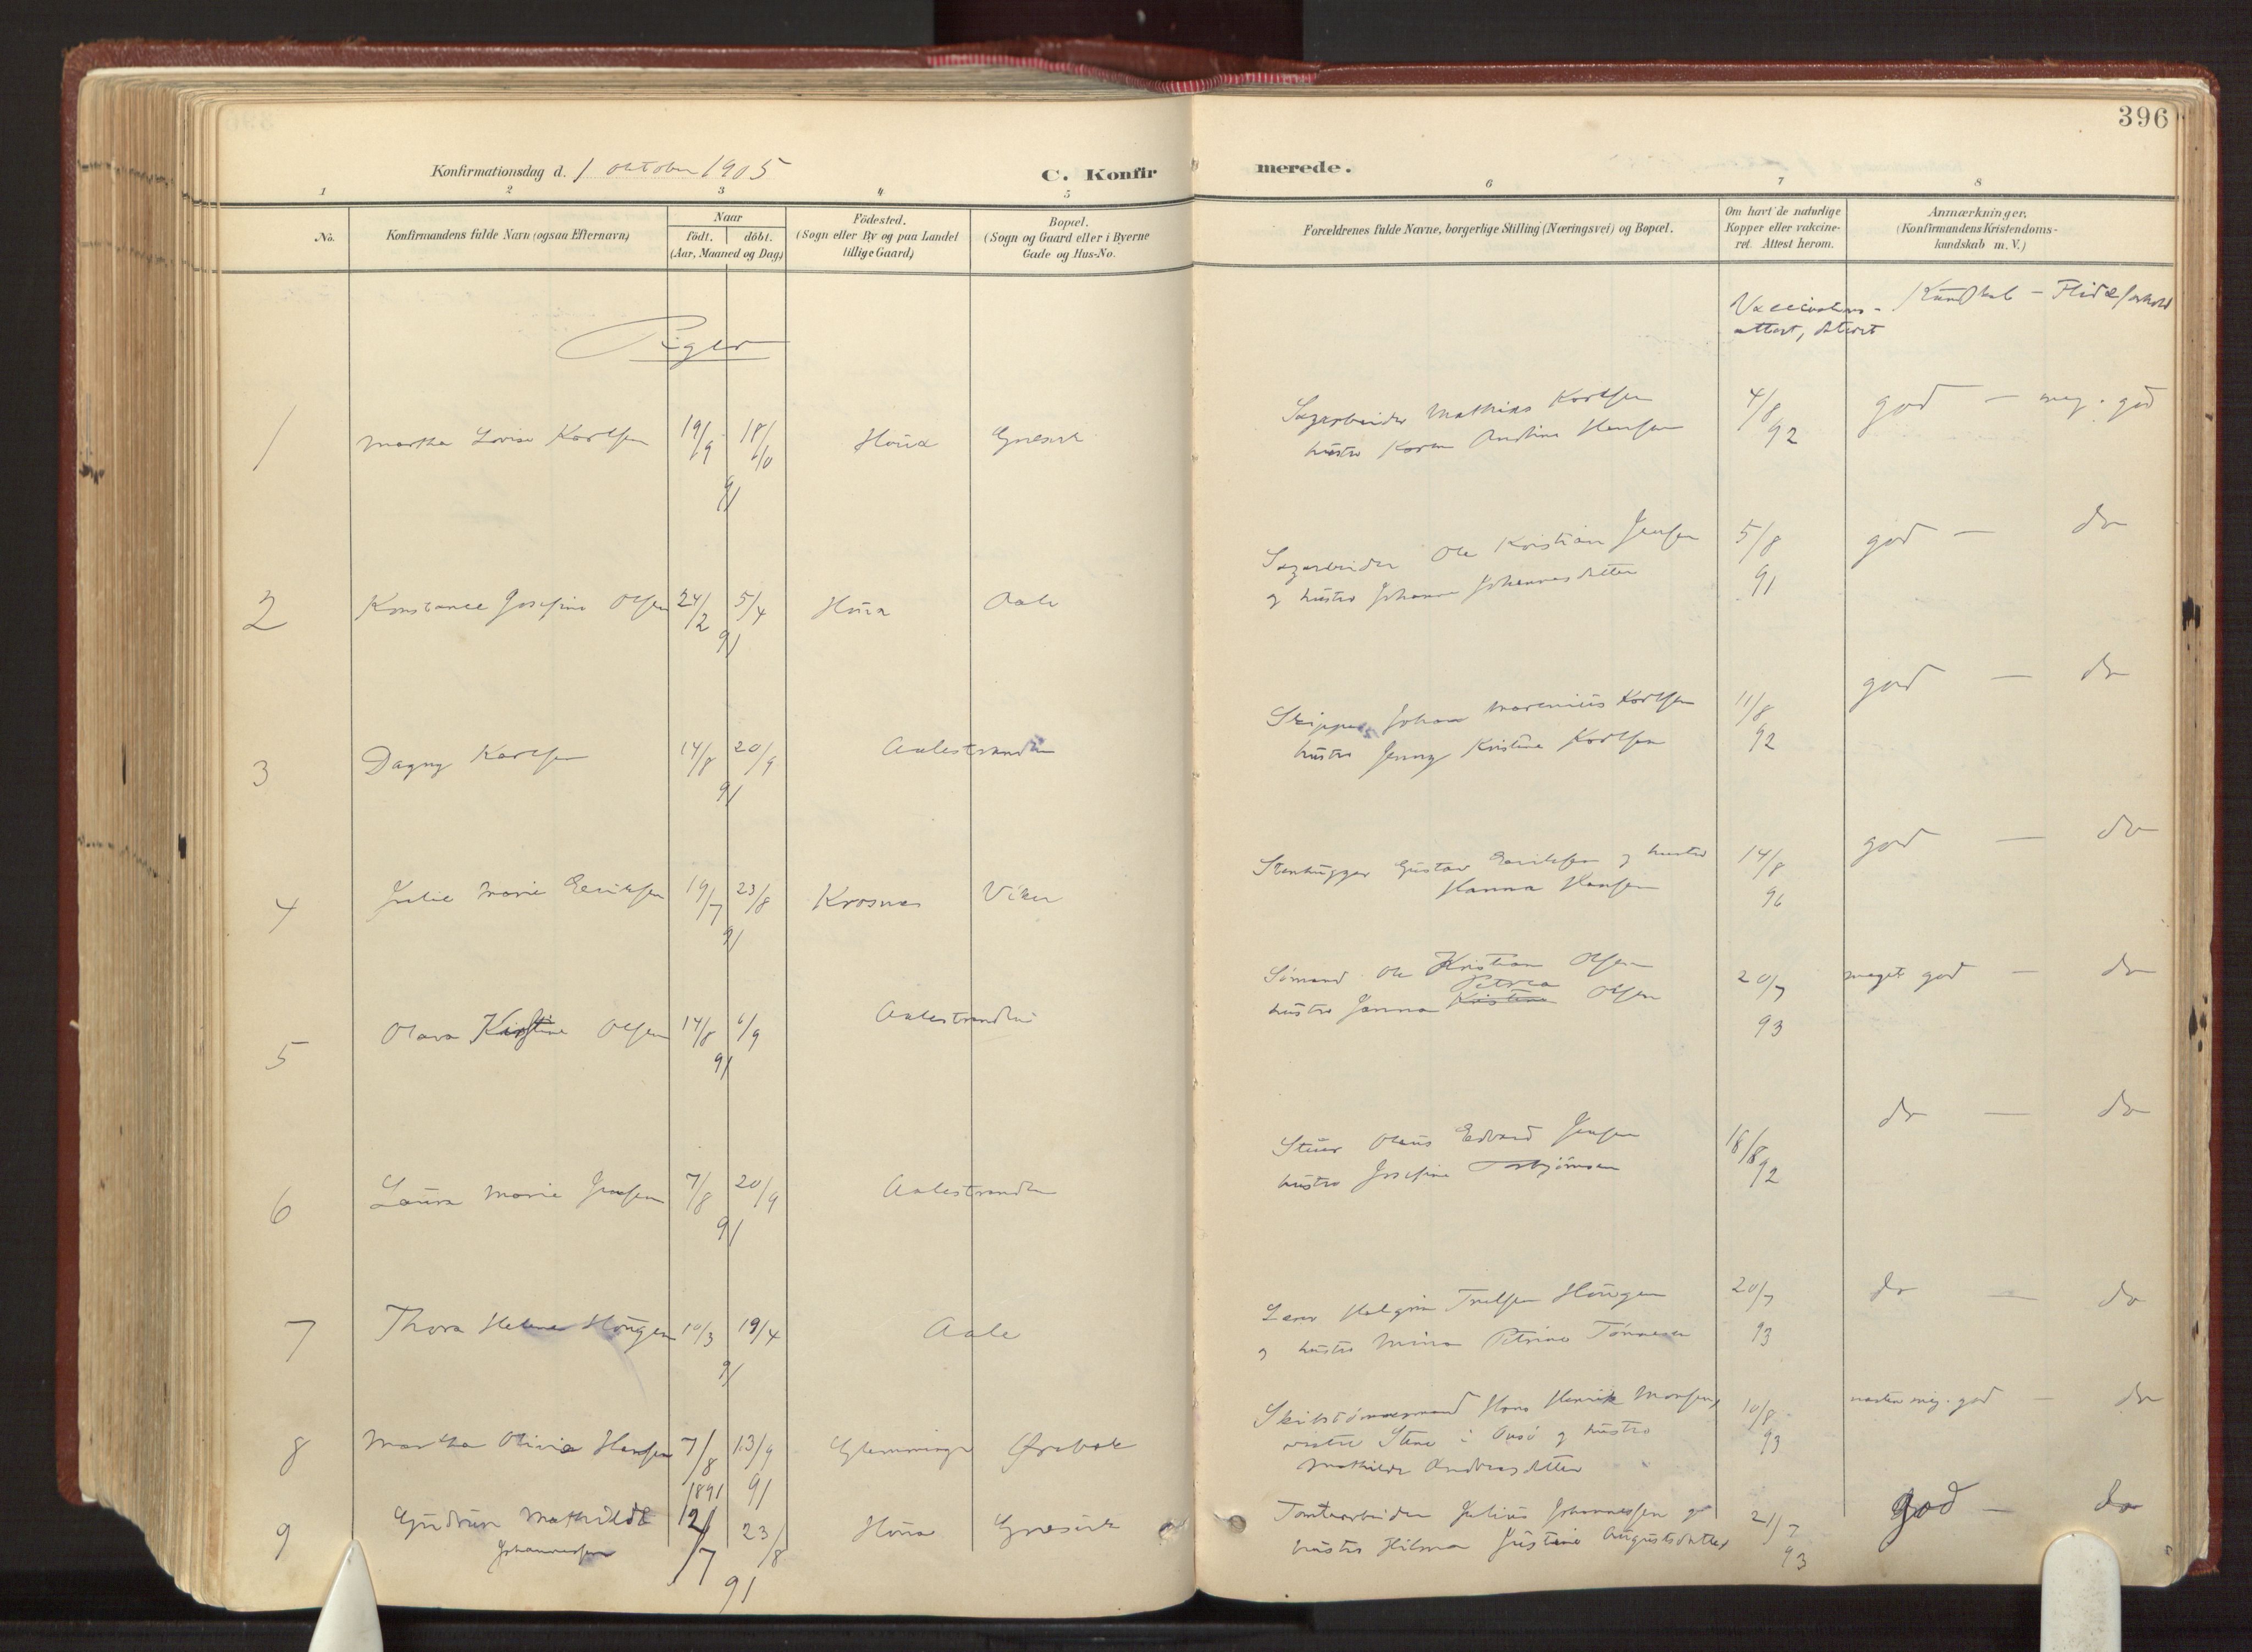 396
Konfirmationsdag d. 1 oktober 1905
C. Konfirmerede.
1 2 3 4 5 6 7 8
No.
Konfirmandens fulde Navn (ogsaa Efternavn)
Naar
født. døbt.
(Aar, Maaned og Dag)
Födested.
(Sogn eller By og paa Landet
tillige Gaard)
Bopæl.
(Sogn og Gaard eller i Byerne
Gade og Hus-No.
Forældrenes fulde Navne, borgerlige Stilling (Næringsvei) og Bopæl.
Om havt de naturlige
Kopper eller vakcine-
ret. Attest herom.
Anmærkninger.
(Konfirmandens Kristendoms-
kundskab m. V.)
Vaccinations-
attest, dateret
Kundskab – Flid & forhold
Piger
1 Martha Lovise Karlsen 19/9 18/10 91 Huna Gresvik
Sagarbeider Mathias Karlsen
hustru Karen Andrine Hansen
4/8 92 god – meg. god
2 Konstance Josefine Olsen 24/2 5/4 91 Huna Aale
Sagarbeider Ole Kristian Jensen
og hustru Johanne Johannesdatter
5/8 91 god – do
3 Dagny Karlsen 14/8 20/9 91 Aalestranden
Skipper Johan Marenius Karlsen
hustru Jenny Kristine Karlsen
11/8 92 god – do
4 Julie Marie Eriksen 19/7 23/8 91 Krosnes Viken
Stenhugger Gustav Eriksen og hustru
Hanna Hansen
14/8 96 god – do
5 Olava Kristine Olsen 14/8 6/9 91 Aalestranden
Sømand Ole Kristian Olsen
Petrea
hustru Janna Kristine Olsen
20/7 93 meget god – do
6 Laura Marie Jensen 7/8 20/9 91 Aalestranden
Stuer Olaus Edvard Jensen
hustru Josefine Torbjørnsen
18/8 92 do – do
7 Thora Helene Haugen 10/3 19/4 91 Aale
Lærer Halgrim Truelsen Haugen
og hustru Mina Petrine Tønnesen
20/7 93 do – do
8 Martha Olivia Hansen 7/8 1891 13/9 91 Glemminge Ørebæk
Skibstømmermand Hans Henrik Monsen,
Stene i Onsø og hustru
Mathilde Andreasdatter
10/8 93 næsten meg. god – do
9 Gudrun Mathilde
Johannessen
12/7 23/8 91 Huna Gresvik
Tomtearbeider Julius Johannessen og
hustru Hilma Justine Augustsdatter
21/7 93 god – do